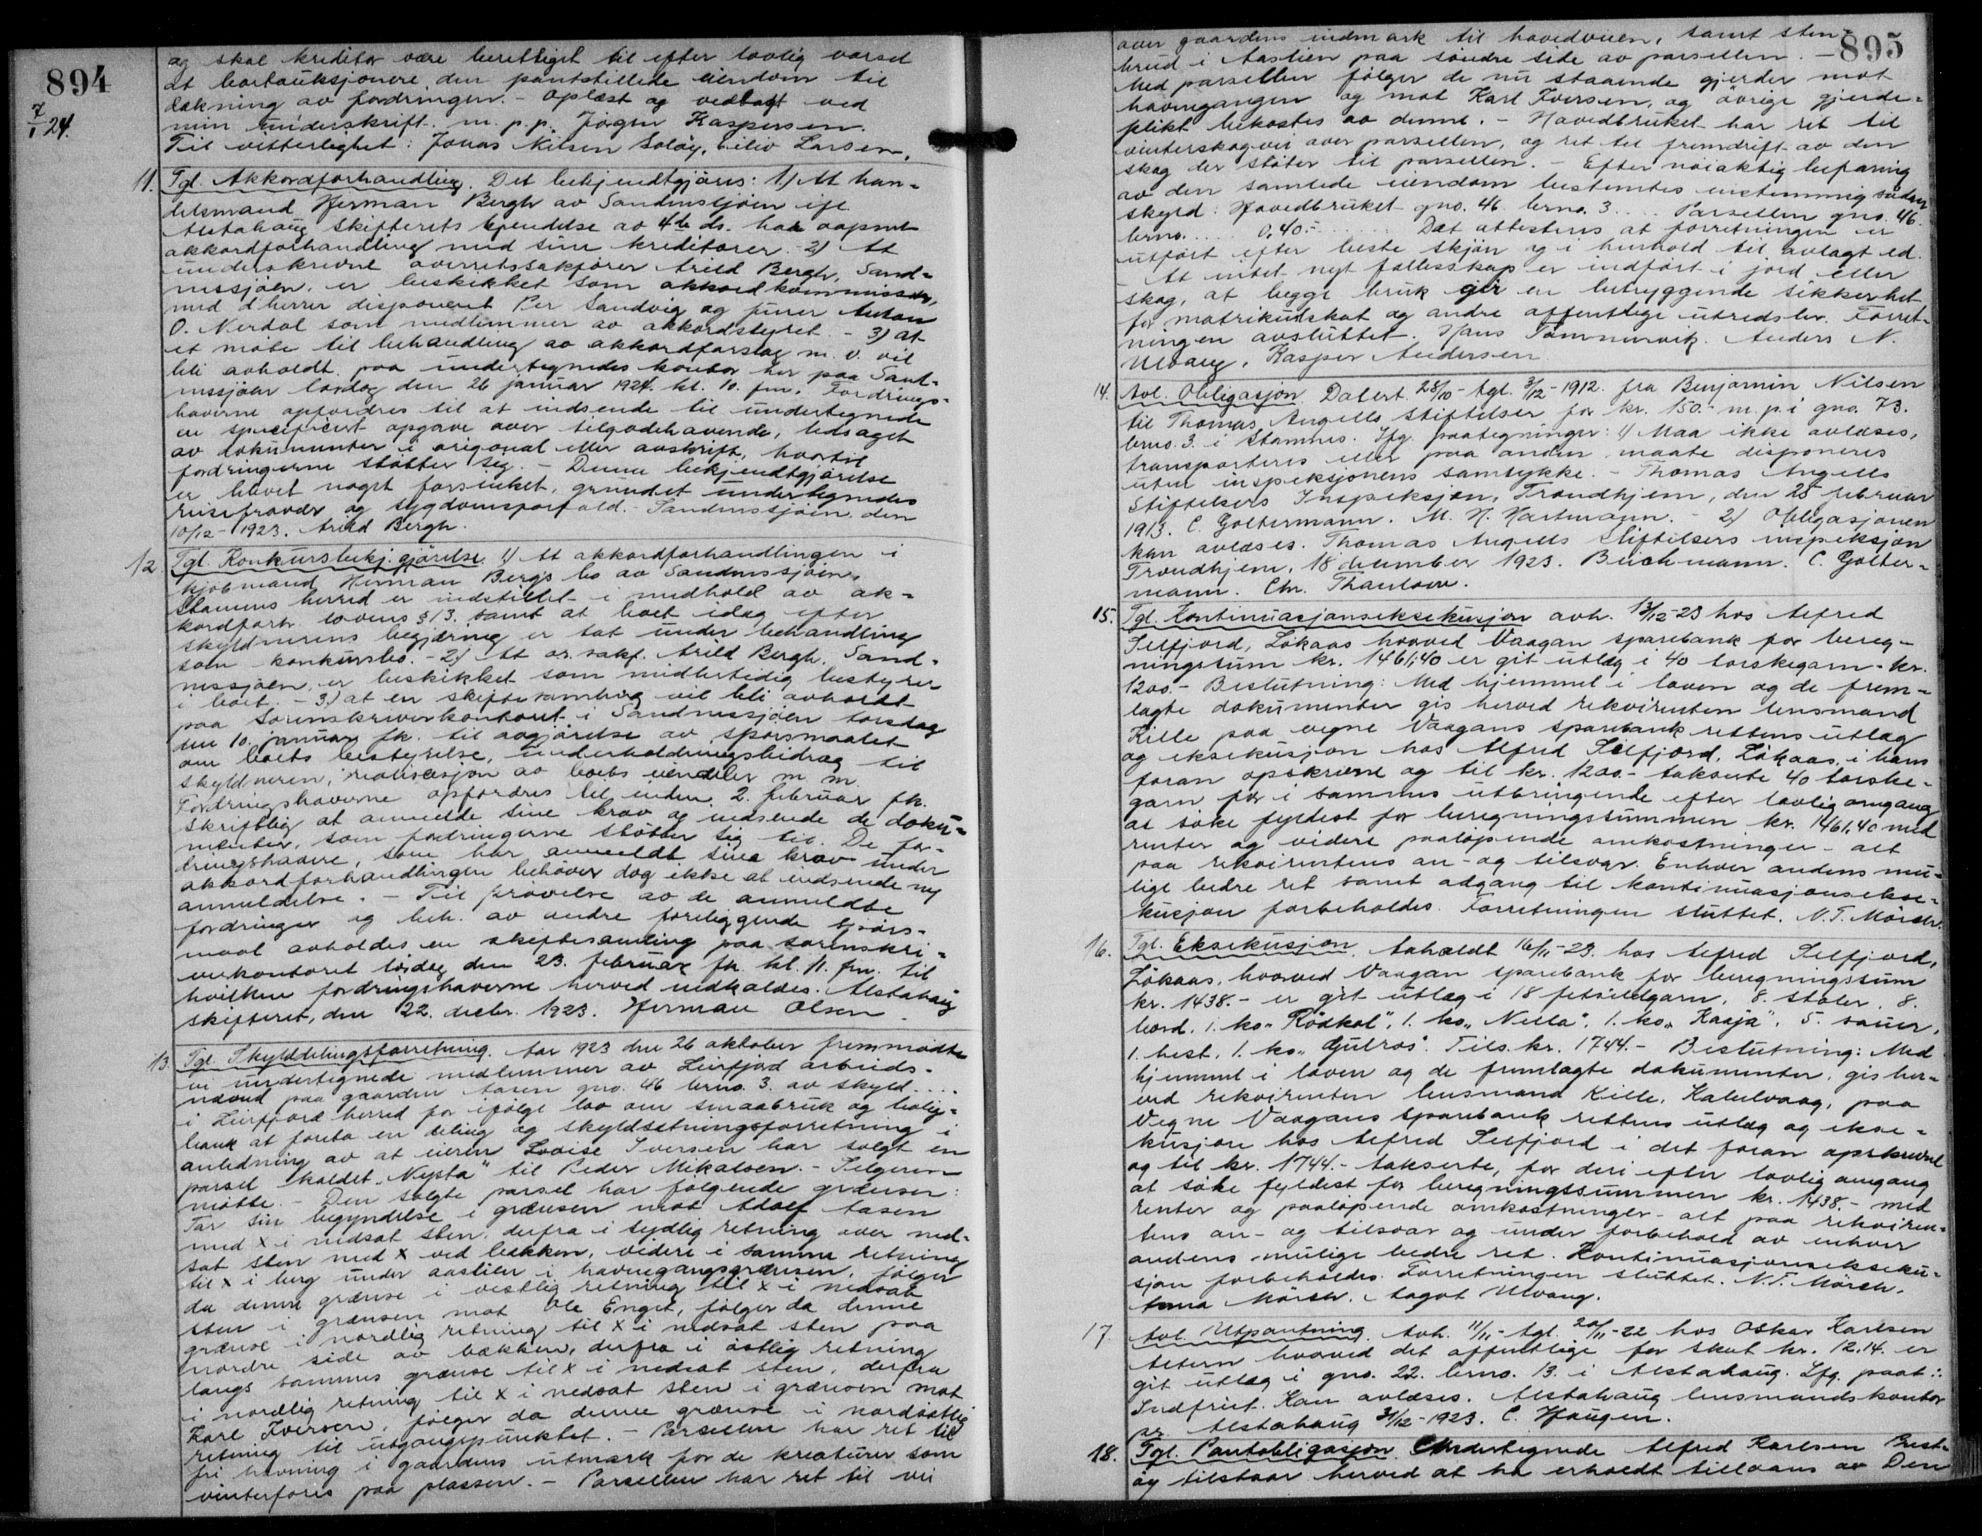 894
7/1 24.
og skal kreditor være berettiget til efter lovlig varsel
at bortauksjonere den pantstillede eiendom til
dækning av fordringen. - Oplæst og vedtat ved
min underskrift. m. p. p. Jörgen Kaspersen.
Til vitterlighet: Jonas Nilsen Solöy, Larsen.
11. Tgl. Akkordforhandling. Det bekjendtgjöres: 1.) At han-
delsmand Herman Bergh av Sandnessjöen ifl.
Alstahaug Skifterets kjendelse av 4de ds. har aapnet
akkordforhandling med sine kreditorer. 2) At
underskrevne overretssakförer Arild Bergh, Sand-
nessjöen, er beskikket som akkordkommissær,
med d'herrer disponent Per Sandvig og Anton
O. Nerdal som medlemmer av akkordstyret. - 3) at
et möte til behandling av akkordforslag m. v. vil
bli avholdt paa undertegnedes kontor her paa Sand-
nessjöen lördag den 26 januar 1924. kl. 10. fm. Fordrings-
haverne opfordres til at indsende til undertegnede
en specificert opgave over tilgodehavende, ledsaget
av dokumenter i original eller avskrift, hvortil
fordringerne stötter sig. - Denne bekjendtgjörelse
er blevet noget forsinket, grundet undertegnedes
reisefravær og sygdomsforfald. - Sandnessjöen den
10/12 - 1923. Arild Bergh.
12 Tgl. Konkursbekj.gjörelse. 1) At akkordforhandlingen i
kjöbmand Herman Berghs bo av Sandnessjöen,
Stamnes herred er indstillet i medhold av ak-
kordforh. lovens § 13. samt at boet idag efter
skyldnerens begjæring er tat under behandling
som konkursbo. - 2) At or. sakf. Arild Bergh, Sand-
nessjöen, er beskikket som midlertidig bestyrer
i boet. - 3) at en skiftesamling vil bli avholdt
paa Sorenskriverkontoret i Sandnessjöen torsdag
den 10. januar fk. til avgjörelse av spörsmaalet
om boets bestyrelse, underholdningsbidrag til
skyldneren, realisasjon av boets eiendeler m m.
Fordringshaverne opfordres til inden 2. februar fk.
skriftlig at anmelde sine krav og indsende de doku-
menter, som fordringerne stötter sig til. De for-
dringshavere, som har anmeldt sine krav under
akkordforhandlingen behöver dog ikke at indsende ny
anmeldelse. - Til prövelse av de anmeldte
fordringer og beh. av andre foreliggende spörs-
maal avholdes en skiftesamling paa sorenskri-
verkontoret lördag den 23. februar fk. kl. 11. fm. til
hvilken fordringshaverne herved indkaldes. Alstahaug
skifteret, den 22. decbr. 1923. Herman Olsen.
13. Tgl. Skylddelingsforretning. Aar 1923 den 26 oktober fremmödte
vi undertegnede medlemmer av Leirfjord arbeids-
nævnd paa gaarden Aasen gno. 46 brno. 3. av skyld ....
i Leirfjord herred for ifölge lov om smaabruk og bolig-
bank at foreta en deling og skyldsetningsforretning i
anledning av at eieren Lovise Iversen har solgt en
parsel kaldet "Nysta" til Peder Mikalsen. - Selgeren
mötte. - Den solgte parsel har fölgende grænser:
Tar sin begyndelse i grænsen mot Adolf Aasen
med x i nedsat sten, derfra i sydlig retning over ned-
sat sten med x ved bækken, videre i samme retning
til x i berg under aastien i havnegangsgrænsen, fölger
da denne grænse i vestlig retning til x i nedsat
sten i grænsen mot Ole Enget, fölger da denne
grænse i nordlig retning til x i nedsat sten paa
nordre side av bækken, derfra i östlig retning
langs sammes grænse til x i nedsat sten, derfra
i nordlig retning til x i nedsat sten i grænsen mot
Karl Iversen, fölger da denne grænse i nordöstlig
retning til utgangspunktet. - Parsellen har ret til
fri havning i gaardens utmark for de kreaturer som
vinterfores paa plassen. - Parsellen har ret til vei
895
over gaardens indmark til hovedveien, samt sten-
brud i Aastien paa söndre side av parsellen. -
Med parsellen fölger de nu staaende gjerder mot
havnegangen og mot Karl Iversen, og övrige gjerde-
plikt bekostes av denne. - Hovedbruket har ret til
vinterskogvei over parsellen, og ret til fremdrift av den
skog der stöter til parsellen. - Efter nöiaktig befaring
av den samlede eiendom bestemtes enstemmig saadan
skyld: Hovedbruket gno. 46 brno. 3 .... Parsellen gno. 46
brno. .... 0,40.- ....... Det attesteres at forretningen er
utfört efter beste skjön og i henhold til avlagt ed.
At intet nyt fællesskap er indfört i jord eller
skog, at begge bruk gir en betryggende sikkerhet
for matrikulskat og andre offentlige utredsler. Forret-
ningen avsluttet. Hans Tömmervik. Anders N.
Ulvang, Kasper Andersen.
14. Avl. Obligasjon. Datert 28/10 - tgl. 3/12 - 1912. fra Benjamin Nilsen
til Thomas Angells Stiftelser for kr. 150.- m. p. i gno. 73.
brno. 3. i Stamnes. Lfg. paategninger: 1) Maa ikke avlæses,
transporteres eller paa anden maate disponeres
uten inspeksjonens samtykke. - Thomas Angells
Stiftelsers Inspeksjon, Trondhjem, den 25 februar
1913. C. Goltermann. M. H. Hartmann. - 2) Obligasjonen
kan avlæses. Thomas Angells Stiftelsers inspeksjon
Trondhjem, 18 december 1923. Beichmann. C. Golter-
mann. Chr. Thaulow.
15. Tgl. Kontinuasjonseksekusjon avh. 13/12-23 hos Alfred
Selfjord, Lökaas hvorved Vaagan sparebank for bereg-
ningssum kr. 1461,40 er git utlæg i 40 torskegarn - kr.
1200.- Beslutning: Med hjemmel i loven og de frem-
lagte dokumenter gis herved rekvirenten lensmand
Kille paa vegne Vaagans sparebank rettens utlæg
og eksekusjon hos Alfred Selfjord, Lökaas, i hans
foran opskrevne og til kr. 1200.- takserte 40 torske-
garn for i sammes utbringende efter lovlig omgang
at söke fyldest for beregningssummen kr. 1461,40 med
renter og videre paalöpende omkostninger - alt
paa rekvirentens an- og tilsvar. Enhver andens mu-
lige bedre ret samt adgang til kontinuasjonsekse-
kusjon forbeholdes. Forretningen sluttet. N. T. Mörch.
16. Tgl. Eksekusjon. Avholdt 16/11-23. hos Alfred Selfjord,
Lökaas, hvorved Vaagan sparebank for beregningssum
kr. 1438.- er git utlæg i 18 garn, 8. stoler, 8.
bord, 1. ko "Rödkol", 1. ko "Nella", 1. ko "Kaaja", 5. sauer,
1. hest, 1. ko "Gulros". Tils. kr. 1744.- Beslutning: Med
hjemmel i loven og de fremlagte dokumenter, gis her-
ved rekvirenten lensmand Kille, Kabelvaag, paa
Vegne Vaagans sparebank rettens utlæg og ekse-
kusjon hos Alfred Selfjord i det foran opskrevne
og til kr. 1744.- takserte, for deri efter lovlig omgang
at söke fyldest for beregningssummen kr. 1438.- med
renter og paalöpende omkostninger - alt paa rekviren-
tens an- og tilsvar og under forbehold av enhver
andens mulige bedre ret. Kontinuasjonseksekus-
sjon forbeholdes. Forretningen sluttet. N. T. Mörch.
Anna Mörch. Aagot Ulvang.
17. Avl. Utpantning. Avh. 11/11 - tgl. 20/11-22 hos Oskar Karlsen
Altern hvorved det offentlige for skat kr. 12.14. er
git utlæg i gno. 22. brno. 13. i Alstahaug. Lfg. paat.:
Indfriet. Kan avlæses. Alstahaug lensmandskontor
pr. Alstahaug 31/12 - 1923. C. Haugen.
18. Tgl. Pantobligasjon. Undertegnede Alfred Karlsen Brat-
öy tilstaar herved at ha erholdt tillaans av Den